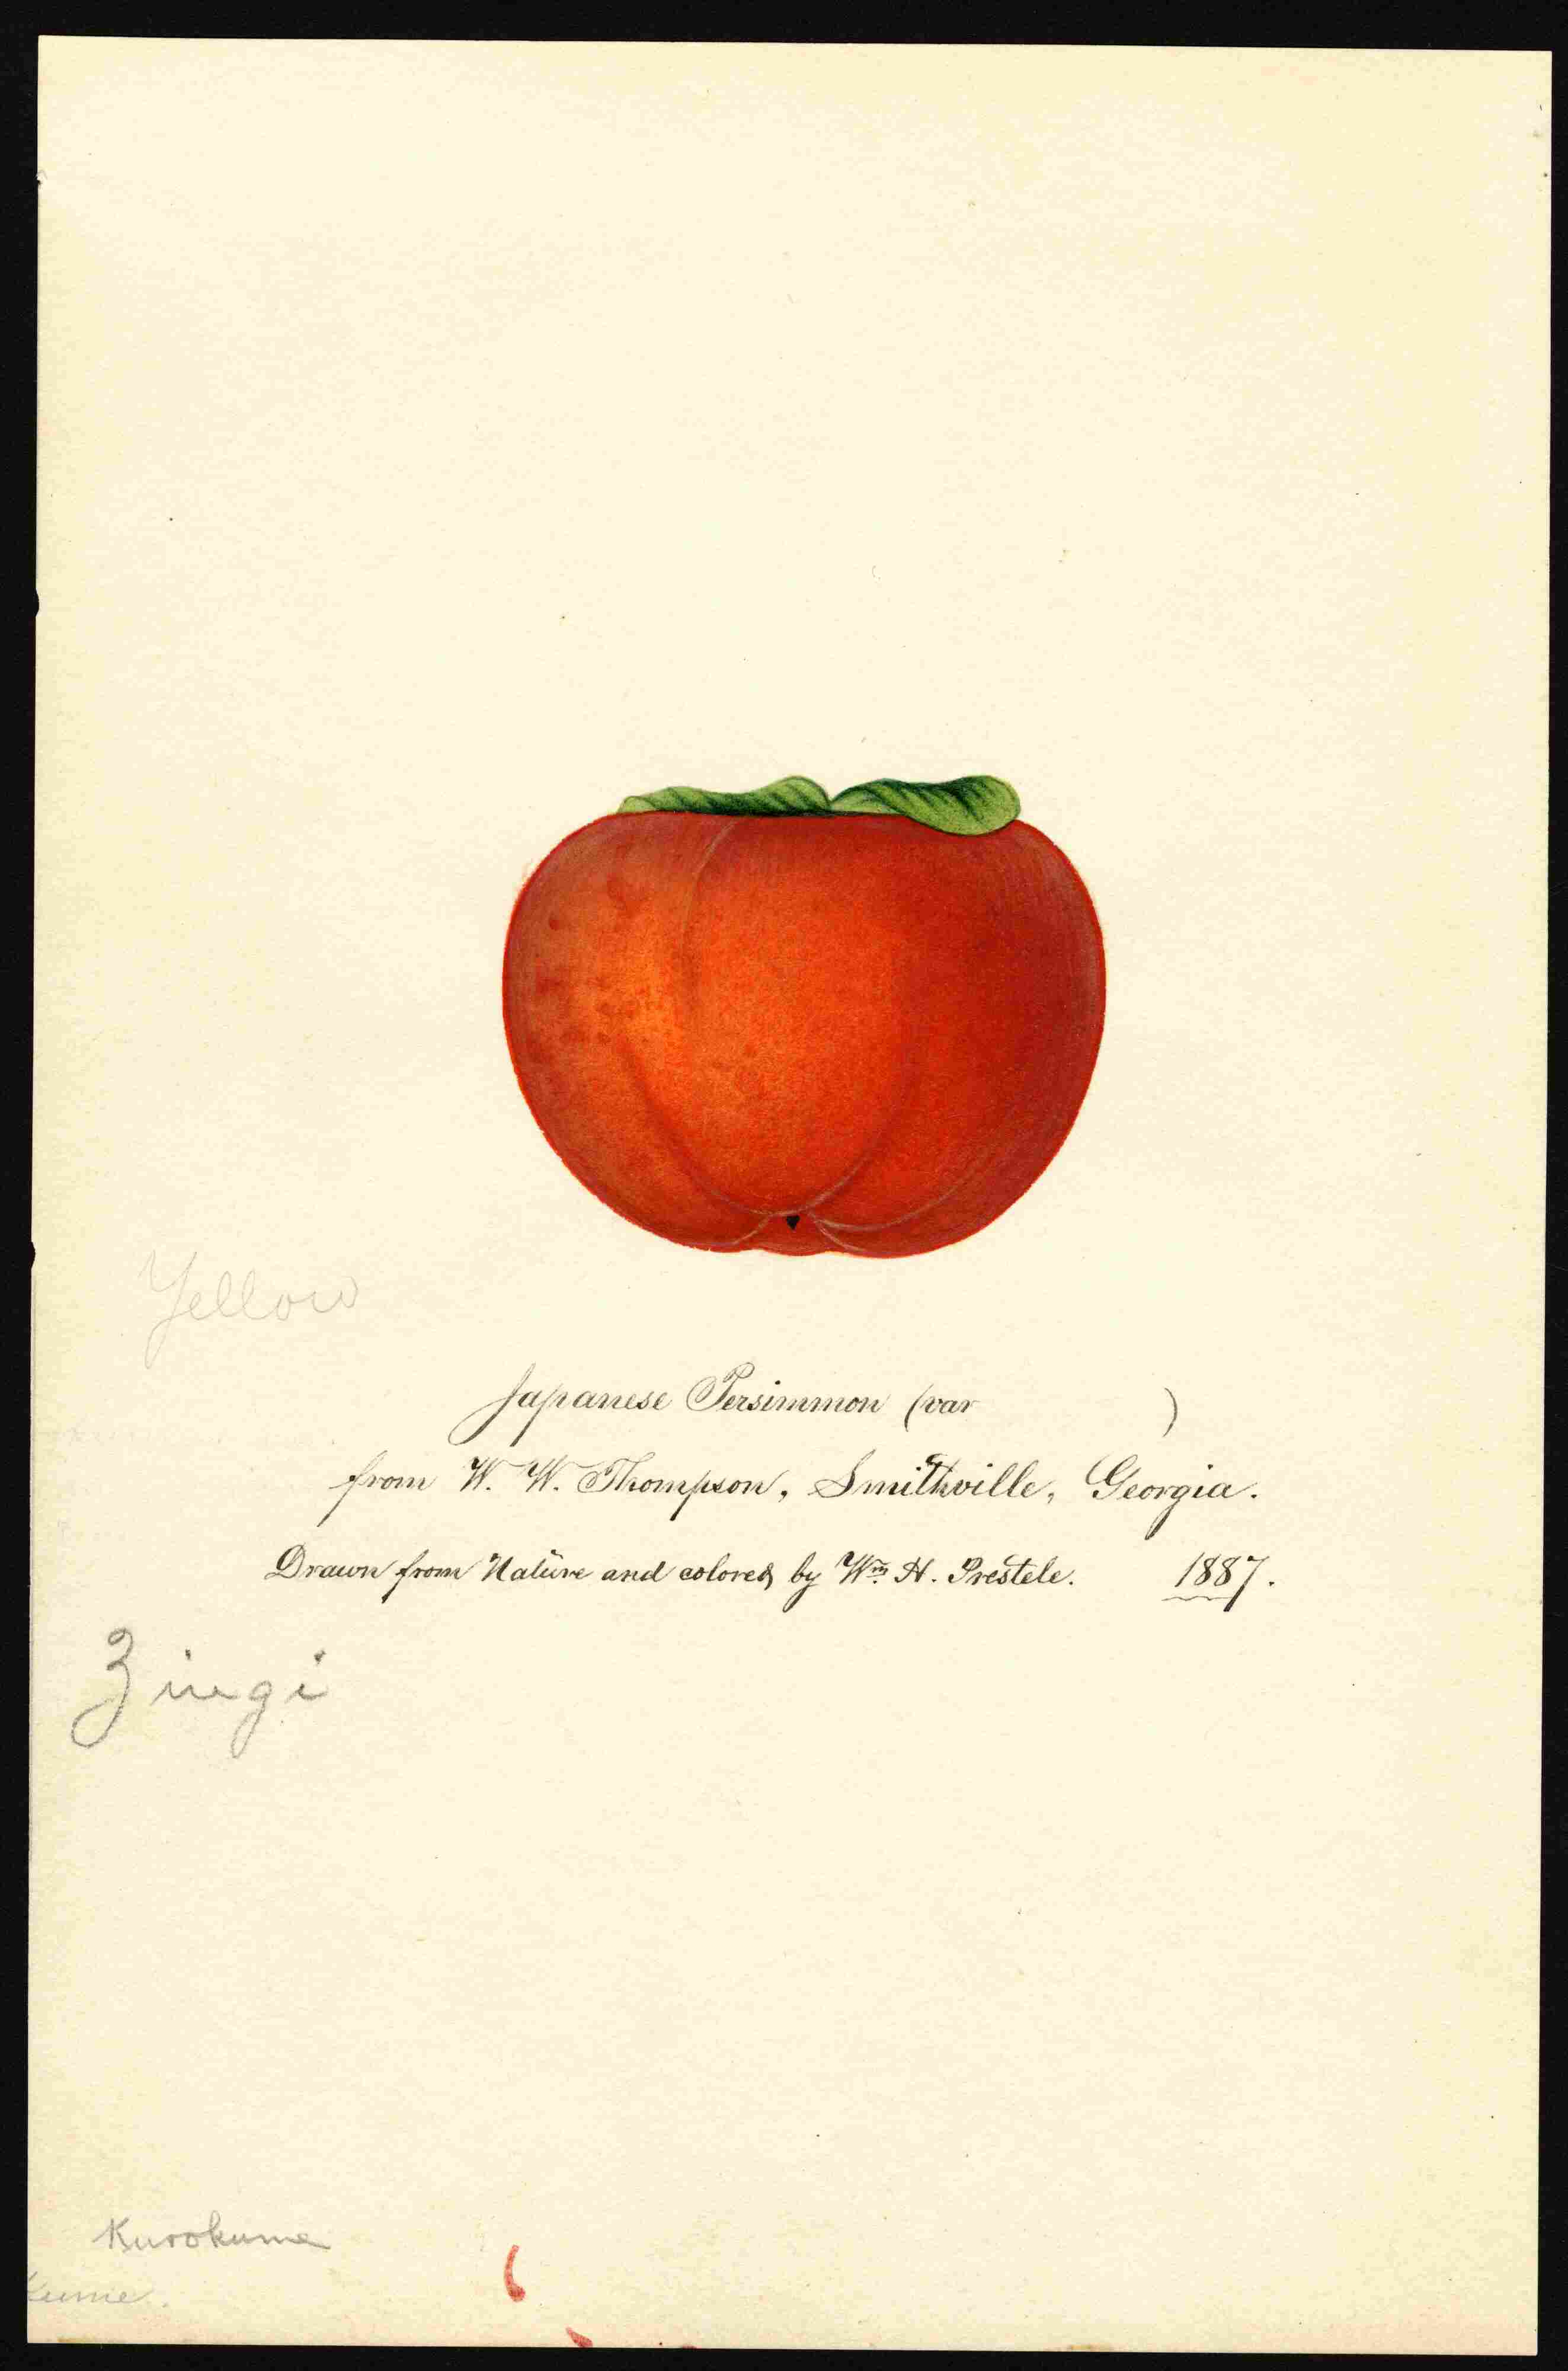 Yellow
Japanese Persimmon (var )
from W. W. Thompson, Smithville, Georgia.
Drawn from Nature and colored by Wm. H. Prestele. 1887.
Zingi
Kurokume
Kume.